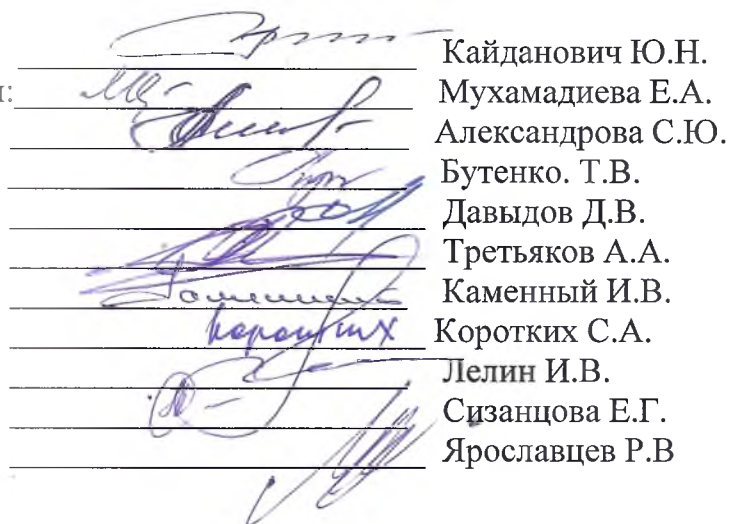 Кайданович Ю.Н.
Мухамадиева Е.А.
Александрова С.Ю.
Бутенко. Т.В.
Давыдов Д.В.
Третьяков А.А.
Каменный И.В.
Коротких Коротких С.А.
Лелин И.В.
Сизанцова Е.Г.
Ярославцев Р.В